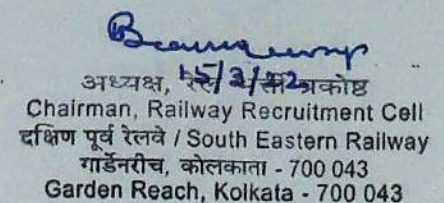 15/3/22
अध्यक्ष, प्रकोष्ठ
Chairman, Railway Recruitment Cell
दक्षिण पूर्व रेलवे / South Eastern Railway
गार्डेनरीच, कोलकाता - 700 043
Garden Reach, Kolkata - 700 043